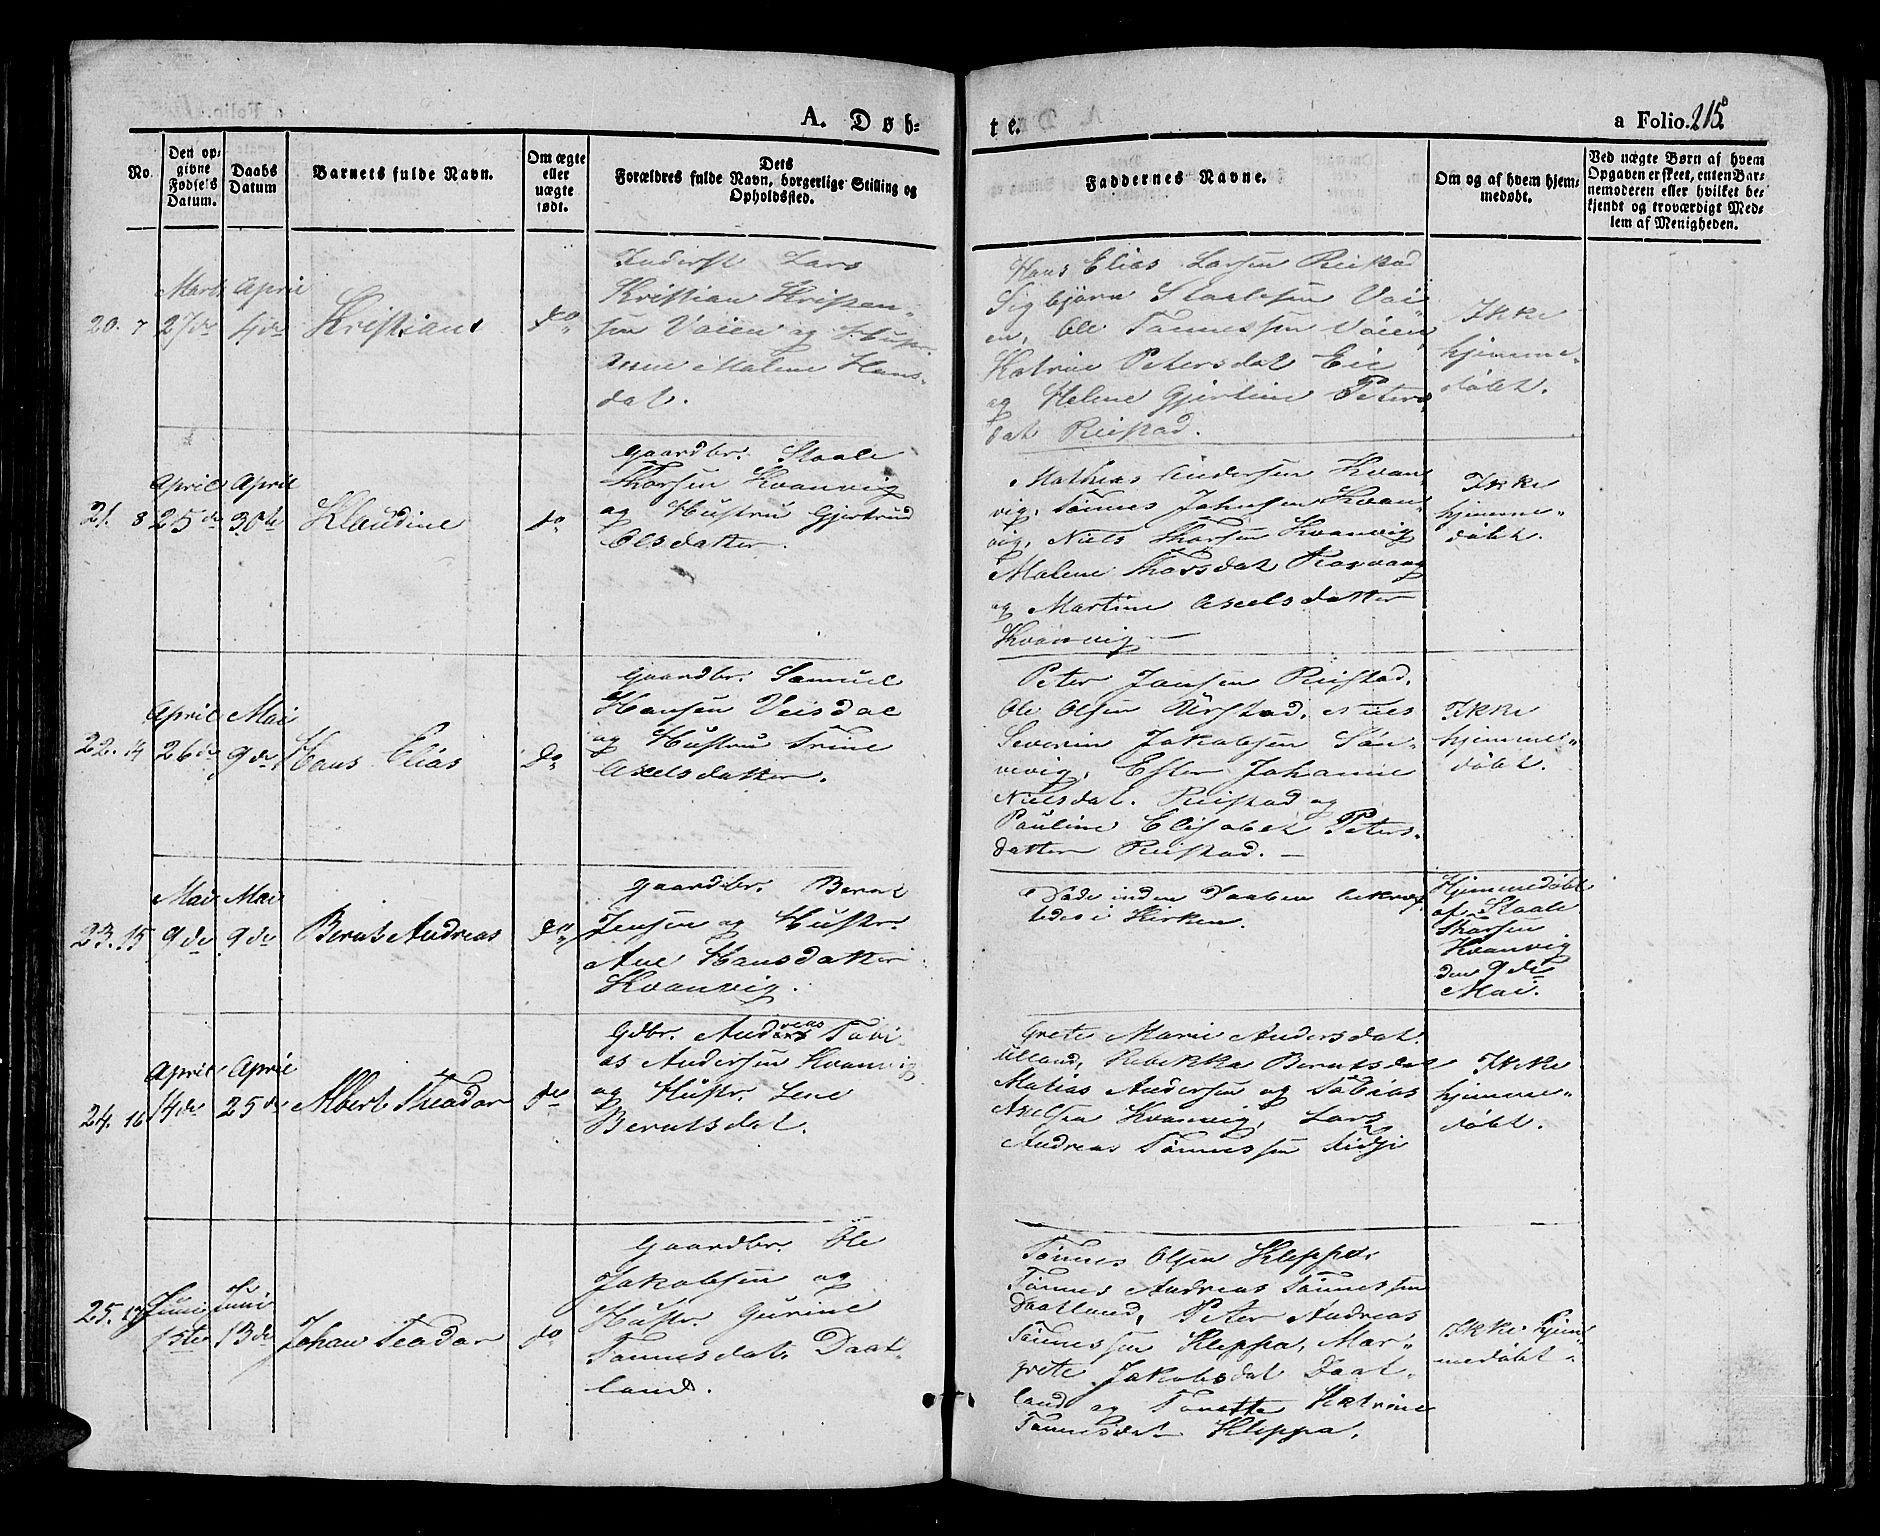 A. Døb-
te.
a Folio. 215
No.
Den op-
givne
Fødsels
Datum.
Daabs
Datum
Barnets fulde Navn.
Om ægte
eller
uægte
født.
Dets
Forældres fulde Navn, borgerlige Stilling og
Opholdssted.
Faddernes Navne.
Om og af hvem hjem-
medøbt.
Ved uægte Børn af hvem
Opgaven er skeet, enten Bar-
nemoderen eller hvilket be-
kjendt og troværdigt Med-
lem af Menigheden.
20. 7
Marts
27de
April
4de
Kristians
do
Inderst Lars
Kristian Kristen-
sen Vaien og Hustr.
Anne Malene Hans-
dat.
Hans Elias Larsen Reistad
Sigbjørn Staalesen Vai-
en, Ole Tønnessen Vaien,
Katrine Petersdat Eie
og Helene Gjertine Peters-
dat Reistad.
Ikke
hjemme-
døbt.
21. 8
April
25de
April
30te
Klaudine
do
Gaardbr. Staale
Thorsen Kvanvig
og Hustru Gjertrud
Olsdatter.
Mathias Andersen Kvan-
vig, Tønnes Jahnsen Kvan-
vig, Niels Thorsen Kvanvig
Malene Thorsdat Kvanvig
og Martine Axelsdatter
Kvanvig
Ikke
hjemme-
døbt.
22. 14
April
26de
Mai
9de
Hans Elias
do
Gaardbr. Samuel
Hansen Veisdal
og Hustru Trine
Axelsdatter.
Peter Jansen Reistad.
Ole Olsen Urstad, Niels
Severin Jakobsen Søn-
vevig, Ester Johanne
Nielsdat. Reistad og
Pauline Elisabet Peters-
datter Reistad.
Ikke
hjemme-
døbt.
23. 15
Mai
9de
Mai
9de
Bernt Andreas
do
Gaardbr. Bernt
Jensen og Hustr.
Ane Hansdatter
Kvanvig.
Døde inden Daaben bekræf-
tedes i Kirken.
Hjemmedøbt
af Staale
Thorsen
Kvanvig
den 9de
Mai.
24. 16
April
14de
April
25de
Albert Theodor
do
Gdbr. Andreas Tobi-
as Andersen Kvanvig
og Hustr. Lene
Berntsdat.
Grete Marie Andersdat.
Ulland, Rebekka Berntsdat
Matias Andersen og Tobias
Axelsen Kvanvig, Lars
Andreas Tønnessen
Ikke
hjemme-
døbt.
25. 17
Juni
1ste
Juni
13de
Johan Teodor
do
Gaardbr. Ole
Jakobsen og
Hustr. Gurine
Tønnesdat. Daat-
land.
Tønnes Olsen Kleppa,
Tønnes Andreas Tønnessen
Daatland, Peter Andreas
Tønnessen Kleppa, Mar-
grete Jakobsdat Daat-
land og Tonette Katrine
Tønnesdat Kleppa.
Ikke hjem-
medøbt